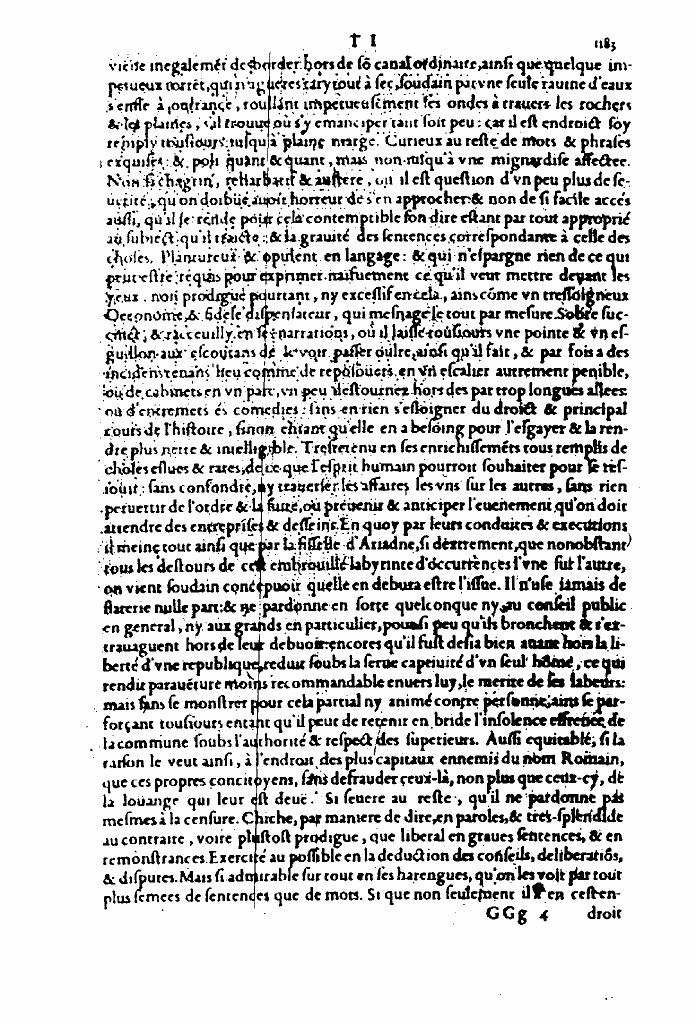 T I 1183
vienne inegalemẽt desborder hors de sõ canal ordinaire, ainsi que quelque im-
petueux torrẽt, qui n'agueres tary tout à sec, soudain par vne seule rauine d'eaux
s'enfle à outrance, roullant impetueusement ses ondes à trauers les rochers
& les plaines, s'il trouue où s'y emanciper tant soit peu: car il est endroict soy
remply tousiours iusqu'à plaine marge. Curieux au reste de mots & phrases
exquises & polis quant & quant, mais non iusqu'à vne mignardise affectee.
Non si chagrin, rebarbatif & austere, où il est question d'vn peu plus de se-
uerité, qu'on doibue auoir horreur de s'en approcher: & non de si facile accés
aussi, qu'il se rende pour cela contemptible son dire estant par tout approprié
au subiect qu'il traicte: & la grauité des sentences correspondante à celle des
choses. Plantureux & opulent en langage: & qui n'espargne rien de ce qui
peut estre requis pour exprimer naifuement ce qu'il veut mettre deuant les
yeux. non prodigue pourtant, ny excessif en cela, ains cõme vn tressoigneux
Oeconome, & fidele dispensateur, qui mesnage le tout par mesure. Sobre suc-
cinct, & recueilly en ses narrations, où il laisse tousiours vne pointe & vn es-
guillon aux escoutans de le voir passer oultre, ainsi qu'il fait, & par fois a des
incidens tenans lieu comme de reposouers en vn escalier autrement penible,
ou de cabinets en vn parc, vn peu destournez hors des par trop longues allees:
ou d'entremets és comedies: sans en rien s'esloigner du droict & principal
cours de l'histoire, sinon entant qu'elle en a besoing pour l'esgayer & la ren-
dre plus nette & intelligible. Tresretenu en ses enrichissemẽts tous remplis de
choses eslues & rares, de ce que l'esprit humain pourroit souhaiter pour se res-
iouir: sans confondre, ny trauerser les affaires les vns sur les autres, sans rien
peruertir de l'ordre & la suite, ou preuenir & anticiper l'euenement qu'on doit
attendre des entreprises & desseins. En quoy par leurs conduites & executions
il meine tout ainsi que par la fisselle d'Ariadne, si dextrement, que nonobstant
tous les destours de cest embrouillé labyrinte d'occurrences l'vne sur l'autre,
on vient soudain conceuoir quelle en debura estre l'issue. Il n'vse iamais de
flaterie nulle part: & ne pardonne en sorte quelconque ny au conseil public
en general, ny aux grands en particulier, pour si peu qu'ils bronchent & s'ex-
trauaguent hors de leur debuoir: encores qu'il fust desia bien auant hors la li-
berté d'vne republique, reduit soubs la serue captiuité d'vn seul hõme, ce qui
rendit parauẽture moins recommandable enuers luy, le merite de ses labeurs:
mais sans se monstrer pour cela partial ny animé contre personne, ains se par-
forçant tousiours entant qu'il peut de retenir en bride l'insolence effrenee de
la commune soubs l'authorité & respect des superieurs. Aussi equitable, si la
raison le veut ainsi, à l'endroit des plus capitaux ennemis du nom Romain,
que ces propres concitoyens, sans defrauder ceux-là, non plus que ceux-cy, de
la louange qui leur est deuë. Si seuere au reste, qu'il ne pardonne pas
mesmes à la censure. Chiche, par maniere de dire, en paroles, & tres-splendide
au contraire, voire plustost prodigue, que liberal en graues sentences, & en
remonstrances. Exercité au possible en la deduction des conseils, deliberatiõs,
& disputes. Mais si admirable sur tout en ses harengues, qu'on les voit par tout
plus semees de sentences que de mots. Si que non seulement il en cest en-
GGg 4 droit